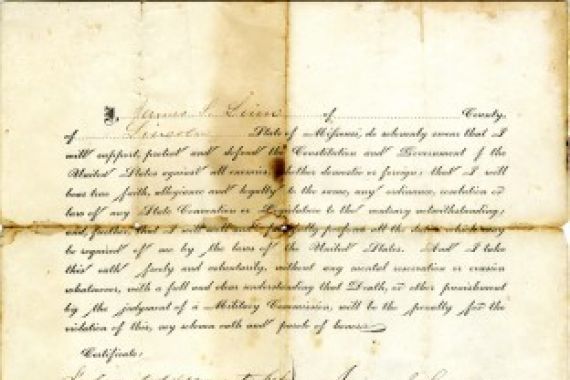 I, James L. of County,
of Lincoln State of Missouri, do solemnly swear that I
will support, protect and defend the Constitution and Government of the
United States against all enemies, whether domestic or foreign; that I will
bear true faith, allegiance and loyalty to the same, any ordinance, resolution or
law of any State Convention or Legislature to the contrary notwithstanding;
and further, that I will well and faithfully perform all the duties which may
be required of me by the laws of the United States. And I take
this oath freely and voluntarily, without any mental reservation or evasion
whatsoever, with a full and clear understanding that Death, or other punishment
by the judgment of a Military Commission, will be the penalty for the
violation of this, my solemn oath and parole of honor.
Certificate: